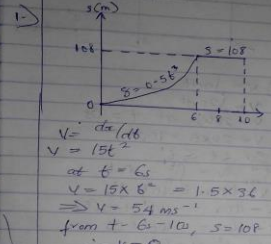 1-)
s(m)
108
s = 108
s = 0.5t³
0
6 8 10 s
V = ds/dt
V = 15t²
at t = 6s
V = 15 x 6² = 1.5 x 36
⇒ V = 54 ms⁻¹
from t - 6s - 10s, s = 108